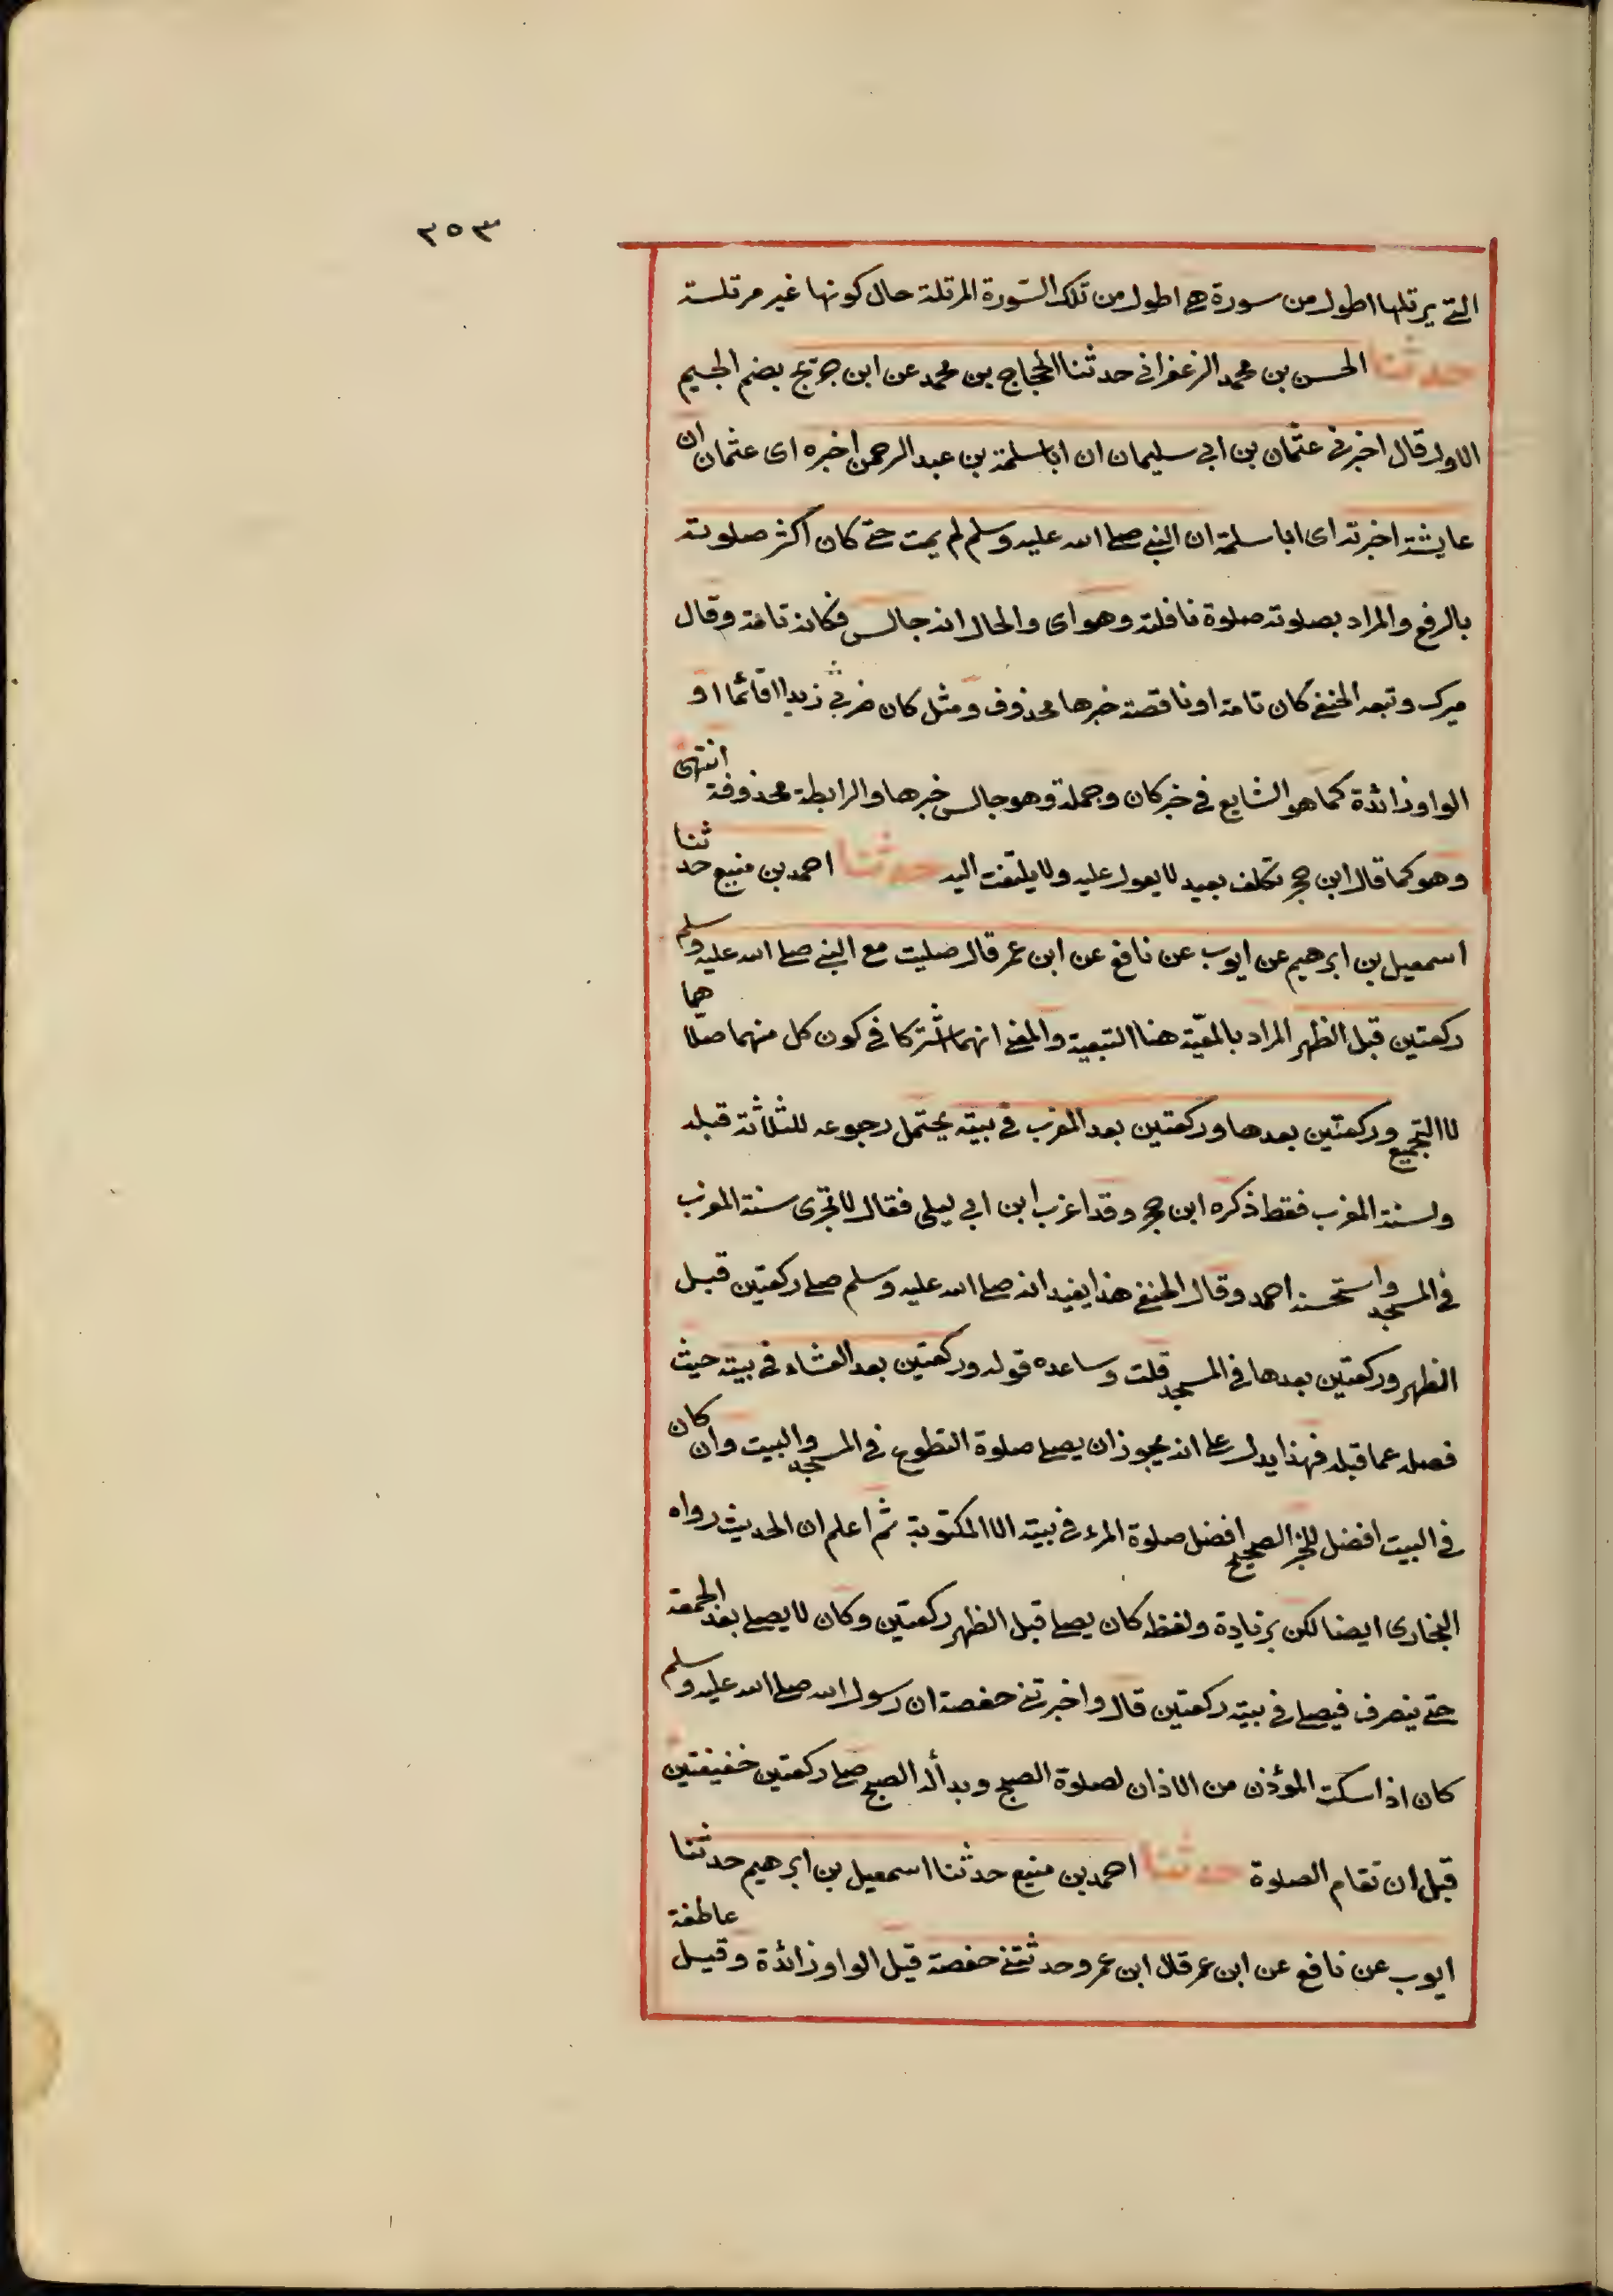 ٣٥٣
التي يرتلها اطول من سورة هي اطول من تلك السّورة المرتلة حال كونها غير مرتلة
حدثنا الحسن بن محمد الزعفراني حدثنا الحجاج بن محمد عن ابن جريج بضم الجيم
الاول قال اخبرني عثمان بن ابي سليمان ان اباسلمة بن عبد الرحمن اخبره اى عثمان ان
عايشة اخبرته اى ابا سلمة ان النبي صلى الله عليه وسلم لم يمت حتى كان اكثر صلوته
بالرفع والمراد بصلوته صلوة نافلة وهو اى والحال انه جالس فكان تامة وقال
ميرك وتبعه الحنفي كان تامة او ناقصة خبرها محذوف ومثل كان ضربي زيدا قائما او
الواو زائدة كما هو الشايع في خبر كان وجملة وهو جالس خبرها والرابطة محذوفة انتهى
وهو كما قال ابن حجر تكلف بعيد لا يعول عليه ولا يلتفت اليه حدثنا احمد بن منيع حدثنا
اسمعيل بن ابرهيم عن ايوب عن نافع عن ابن عمر قال صليت مع النبي صلى الله عليه وسلم
ركعتين قبل الظهر المراد بالمعيّة هنا التبعية والمعنى انهما اشتركا في كون كل منهما صلاهما
لا التجميع وركعتين بعدها وركعتين بعد المغرب في بيته يحتمل رجوعه للثلاثة قبله
ولسنة المغرب فقط ذكره ابن حجر وقد اغرب ابن ابي ليلى فقال لا تجزى سنة المغرب
في المسجد واستحسنه احمد وقال الحنفي هذا يفيد انه صلى الله عليه وسلم صلى ركعتين قبل
الظهر وركعتين بعدها في المسجد قلت وساعده قوله وركعتين بعد العشاء في بيته حيث
فصله عما قبله فهذا يدل على انه يجوز ان يصلى صلوة التطوع في المسجد والبيت وان كان
في البيت افضل للخبر الصحيح افضل صلوة المرء في بيته الا المكتوبة ثم اعلم ان الحديث رواه
البخارى ايضا لكن بزيادة ولفظه كان يصلى قبل الظهر ركعتين وكان لا يصلى بعد الجمعة
حتى ينصرف فيصلى في بيته ركعتين قال واخبرتني حفصة ان رسول الله صلى الله عليه وسلم
كان اذا سكت المؤذن من الاذان لصلوة الصبح وبدأ له الصبح صلى ركعتين خفيفتين
قبل ان تقام الصلوة حدثنا احمد بن منيع حدثنا اسمعيل بن ابرهيم حدثنا
ايوب عن نافع عن ابن عمر قال ابن عمر وحدثتني حفصة قيل الواو زائدة وقيل عاطفة